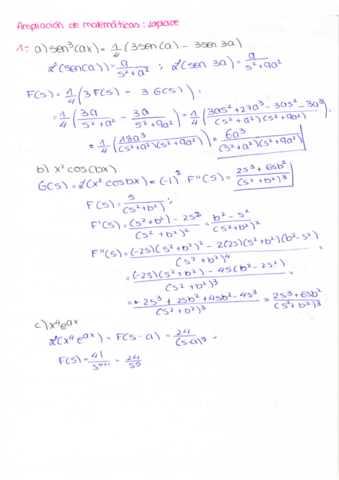 Ampliación de matemáticas: Laplace
1: a) sen³(ax) = 1/4 (3sen(a) - 3sen 3a)
L(sen(a)) = a/(s²+a²) ; L(sen 3a) = a/(s²+9a²)
F(s) = 1/4 (3F(s) - 3G(s)) =
= 1/4 (3a/(s²+a²) - 3a/(s²+9a²)) = 1/4 (3as²+27a³-3as²-3a³)/((s²+a²)(s²+9a²))
= 1/4 (18a³/((s²+a²)(s²+9a²))) = 6a³/((s²+a²)(s²+9a²))
b) x² cos(bx)
G(s) = L(x² cos bx) = (-1)² F''(s) = (2s³+6sb²)/(s²+b²)³
F(s) = s/(s²+b²) ;
F'(s) = ((s²+b²) - 2s²)/(s²+b²)² = (b²-s²)/(s²+b²)²
F''(s) = ((-2s)(s²+b²)² - 2(2s)(s²+b²)(b²-s²))/(s²+b²)⁴ =
= ((-2s)(s²+b²) - 4s(b²-2s²))/(s²+b²)³ =
= (-2s³+2sb²+4sb²-4s³)/(s²+b²)³ = (2s³+6sb²)/(s²+b²)³
c) x⁴e^(ax)
L(x⁴e^(ax)) = F(s-a) = 24/(s-a)⁵ ;
F(s) = 4!/s⁴⁺¹ = 24/s⁵